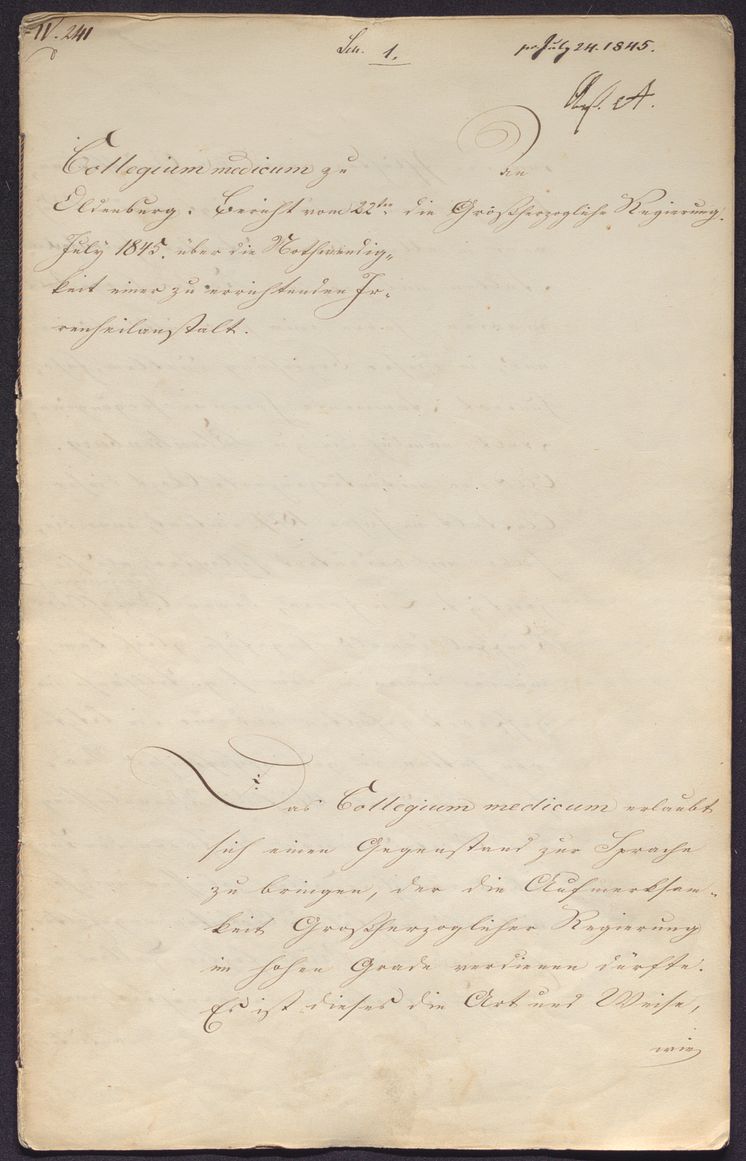 IV. 241
1.
pr July 24. 1845.
A.
Collegium medicum zu
Oldenburg. Bericht vom 22ten
July 1845. über die Nothwendig„
keit einer zu errichtenden Ir„
renheilanstalt.
An
die Großherzogliche Regierung.
Das Collegium medicum erlaubt
sich einen Gegenstand zur Sprache
zu bringen, der die Aufmerksam„
keit Großherzoglicher Regierung
im hohen Grade verdienen dürfte.
Es ist dieses die Art und Weise,
wie